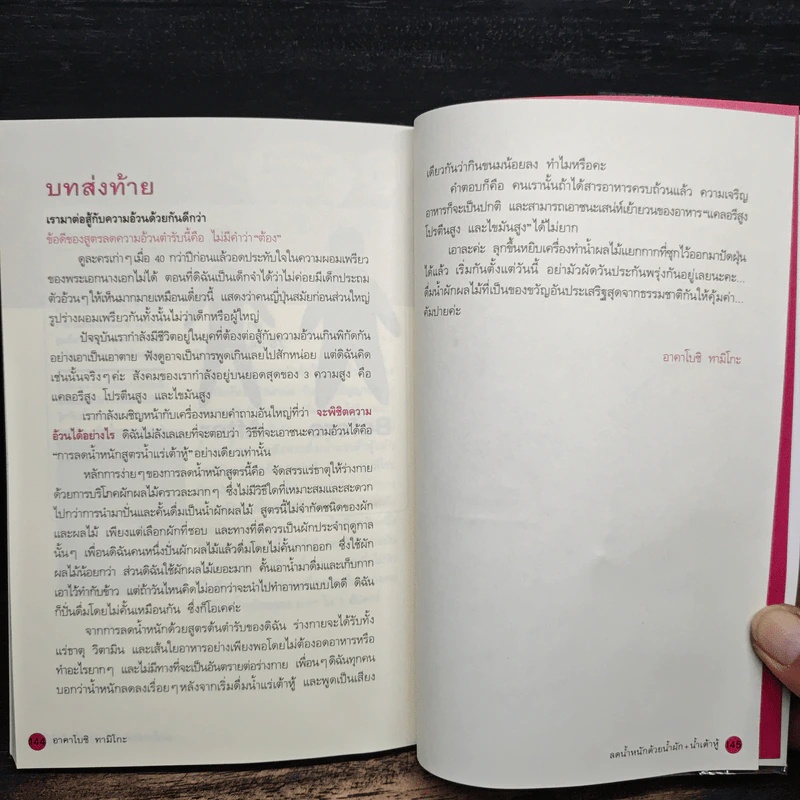 บทส่งท้าย
เรามาต่อสู้กับความอ้วนด้วยกันดีกว่า
ข้อดีของสูตรลดความอ้วนตำรับนี้คือ ไม่มีคำว่า“ต้อง”
ดูละครเก่าๆเมื่อ 40 กว่าปีก่อนแล้วอดประทับใจในความผอมเพรียว
ของพระเอกนางเอกไม่ได้ ตอนที่ดิฉันเป็นเด็กจำได้ว่าไม่ค่อยมีเด็กประถม
ตัวอ้วนๆให้เห็นมากมายเหมือนเดี๋ยวนี้ แสดงว่าคนญี่ปุ่นสมัยก่อนส่วนใหญ่
รูปร่างผอมเพรียวกันทั้งนั้นไม่ว่าเด็กหรือผู้ใหญ่
ปัจจุบันเรากำลังมีชีวิตอยู่ในยุคที่ต้องต่อสู้กับความอ้วนเกินพิกัดกัน
อย่างเอาเป็นเอาตาย ฟังดูอาจเป็นการพูดเกินเลยไปสักหน่อย แต่ดิฉันคิด
เช่นนั้นจริงๆค่ะ สังคมของเรากำลังอยู่บนยอดสุดของ 3 ความสูง คือ
แคลอรีสูง โปรตีนสูง และไขมันสูง
เรากำลังเผชิญหน้ากับเครื่องหมายคำถามอันใหญ่ที่ว่า จะพิชิตความ
อ้วนได้อย่างไร ดิฉันไม่ลังเลเลยที่จะตอบว่า วิธีที่จะเอาชนะความอ้วนได้คือ
“การลดน้ำหนักสูตรน้ำแร่เต้าหู้”อย่างเดียวเท่านั้น
หลักการง่ายๆของการลดน้ำหนักสูตรนี้คือ จัดสรรแร่ธาตุให้ร่างกาย
ด้วยการบริโภคผักผลไม้คราวละมากๆ ซึ่งไม่มีวิธีใดที่เหมาะสมและสะดวก
ไปกว่าการนำมาปั่นและคั้นดื่มเป็นน้ำผักผลไม้ สูตรนี้ไม่จำกัดชนิดของผัก
และผลไม้ เพียงแต่เลือกผักที่ชอบ และทางที่ดีควรเป็นผักประจำฤดูกาล
นั้นๆ เพื่อนดิฉันคนหนึ่งปั่นผักผลไม้แล้วดื่มโดยไม่คั้นกากออก ซึ่งใช้ผัก
ผลไม้น้อยกว่า ส่วนดิฉันใช้ผักผลไม้เยอะมาก คั้นเอาน้ำมาดื่มและเก็บกาก
เอาไว้ทำกับข้าว แต่ถ้าวันไหนคิดไม่ออกว่าจะนำไปทำอาหารแบบใดดี ดิฉัน
ก็ปั่นดื่มโดยไม่คั้นเหมือนกัน ซึ่งก็โอเคค่ะ
จากการลดน้ำหนักด้วยสูตรต้นตำรับของดิฉัน ร่างกายจะได้รับทั้ง
แร่ธาตุ วิตามิน และเส้นใยอาหารอย่างเพียงพอโดยไม่ต้องอดอาหารหรือ
ทำอะไรยากๆ และไม่มีทางที่จะเป็นอันตรายต่อร่างกาย เพื่อนๆดิฉันทุกคน
บอกว่าน้ำหนักลดลงเรื่อยๆหลังจากเริ่มดื่มน้ำแร่เต้าหู้ และพูดเป็นเสียง
144 อาคาโบชิ ทามิโกะ
เดียวกันว่ากินขนมน้อยลง ทำไมหรือคะ
คำตอบก็คือ คนเรานั้นถ้าได้สารอาหารครบถ้วนแล้ว ความเจริญ
อาหารก็จะเป็นปกติ และสามารถเอาชนะเสน่ห์เย้ายวนของอาหาร“แคลอรีสูง
โปรตีนสูง และไขมันสูง”ได้ไม่ยาก
เอาละค่ะ ลุกขึ้นหยิบเครื่องทำน้ำผลไม้แยกกากที่ซุกไว้ออกมาปัดฝุ่น
ได้แล้ว เริ่มกันตั้งแต่วันนี้ อย่ามัวผัดวันประกันพรุ่งกันอยู่เลยนะคะ...
ดื่มน้ำผักผลไม้ที่เป็นของขวัญอันประเสริฐสุดจากธรรมชาติกันให้คุ้มค่า...
คัมปายค่ะ
อาคาโบชิ ทามิโกะ
ลดน้ำหนักด้วยน้ำผัก+น้ำเต้าหู้ 145